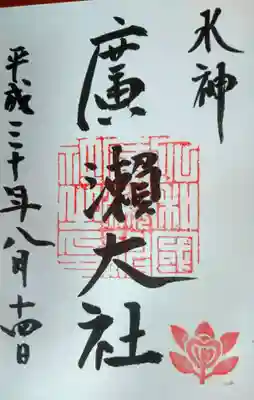 水神
廣瀬大社
平成三十年八月十四日